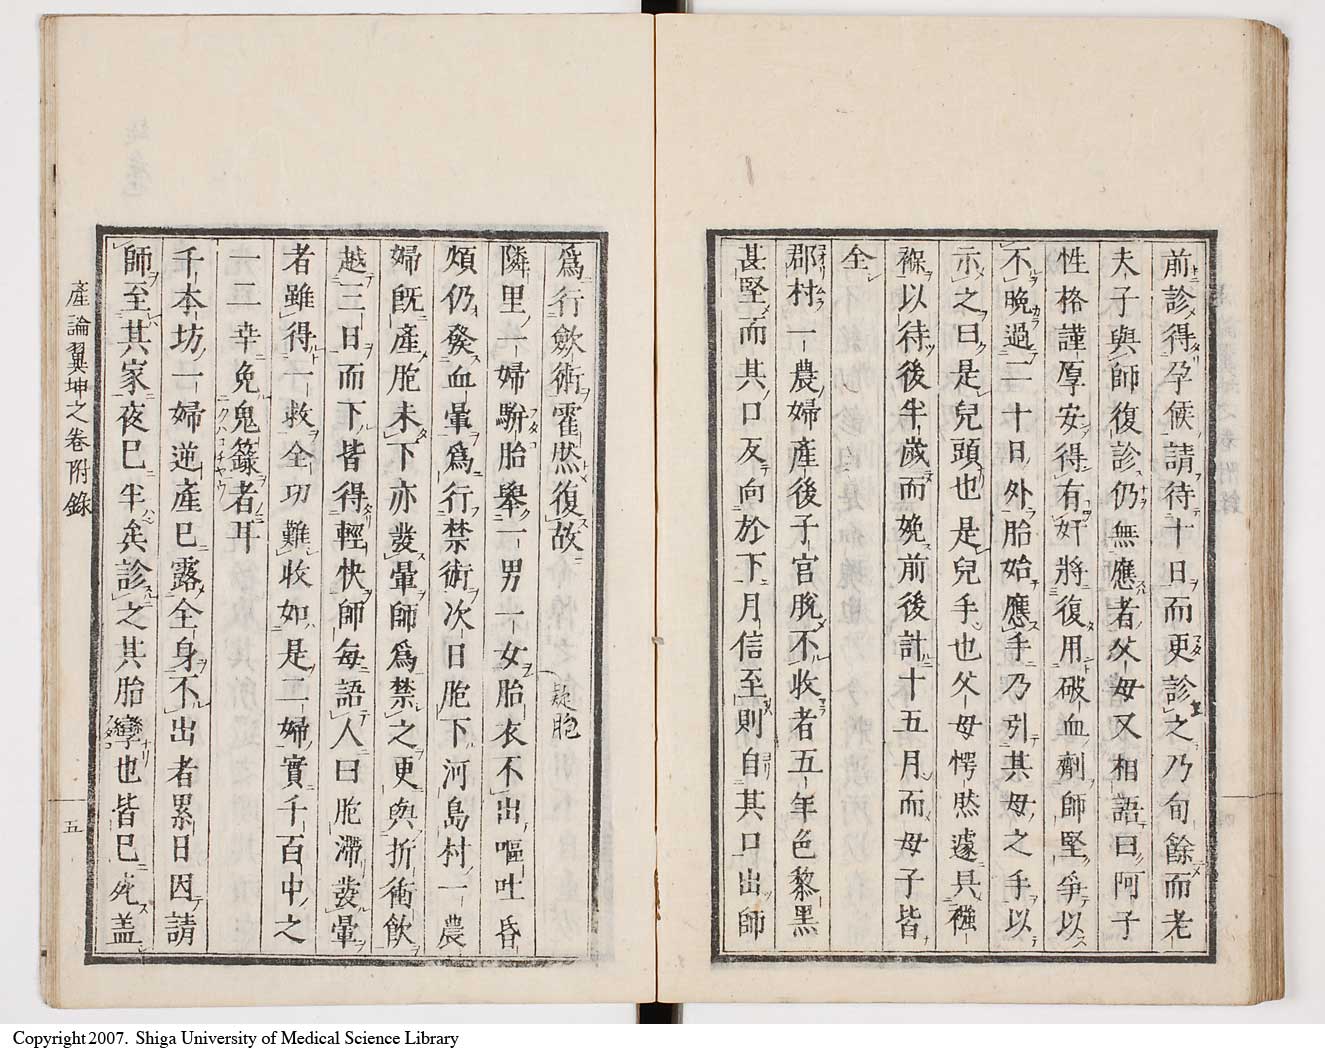 前診得孕候請待十日而更診之乃旬餘而老
夫子與師復診仍無應者父母又相語曰阿子
性格謹厚安得有奸將復用破血劑師堅爭以
不晩過二十日外胎始應手乃引其母之手以
示之曰是兒頭也是兒手也父母愕然遽具襁
褓以待後半歲而娩前後計十五月而母子皆
全
郡村一農婦產後子宮脫不收者五年色黎黑
甚堅而其口反向於下月信至則自其口出師
爲行斂術霍然復故
隣里一婦駢胎舉一男一女胎衣不出嘔吐昏
疑胞
煩仍發血暈爲行禁術次日胞下河島村一農
婦既產胞未下亦發暈師爲禁之更與折衝飲
越三日而下皆得輕快師每語人曰胞滯發暈
者雖得一救全功難收如是二婦實千百中之
一二幸免鬼籙者耳
千本坊一婦逆產已露全身不出者累日因請
師至其家夜已半矣診之其胎孿也皆已死蓋
產論翼坤之卷附錄
五
Copyright 2007. Shiga University of Medical Science Library